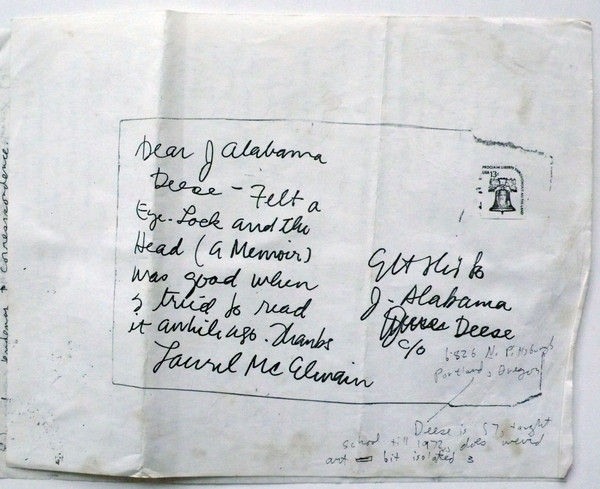 Dear J Alabama
Deese - Felt a
Eye-Lock and the
Head (a Memoir)
was good when
I tried to read
it awhile ago. Thanks
Laurel McElwain
PROCLAIM LIBERTY
USA 13c
Get this to
J. Alabama
Deese
c/o
6826 N. Pittsburgh
Portland, Oregon
Deese is 57, taught
school till 1972, does weird
art - bit isolated
correspondence